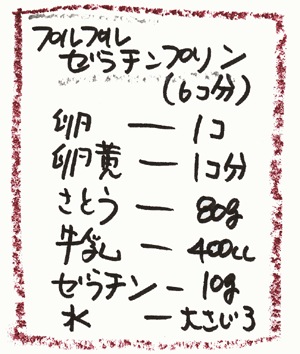 プルプル
ゼラチンプリン
(6コ分)
卵 — 1コ
卵黄 — 1コ分
さとう — 80g
牛乳 — 400cc
ゼラチン — 10g
水 — 大さじ3